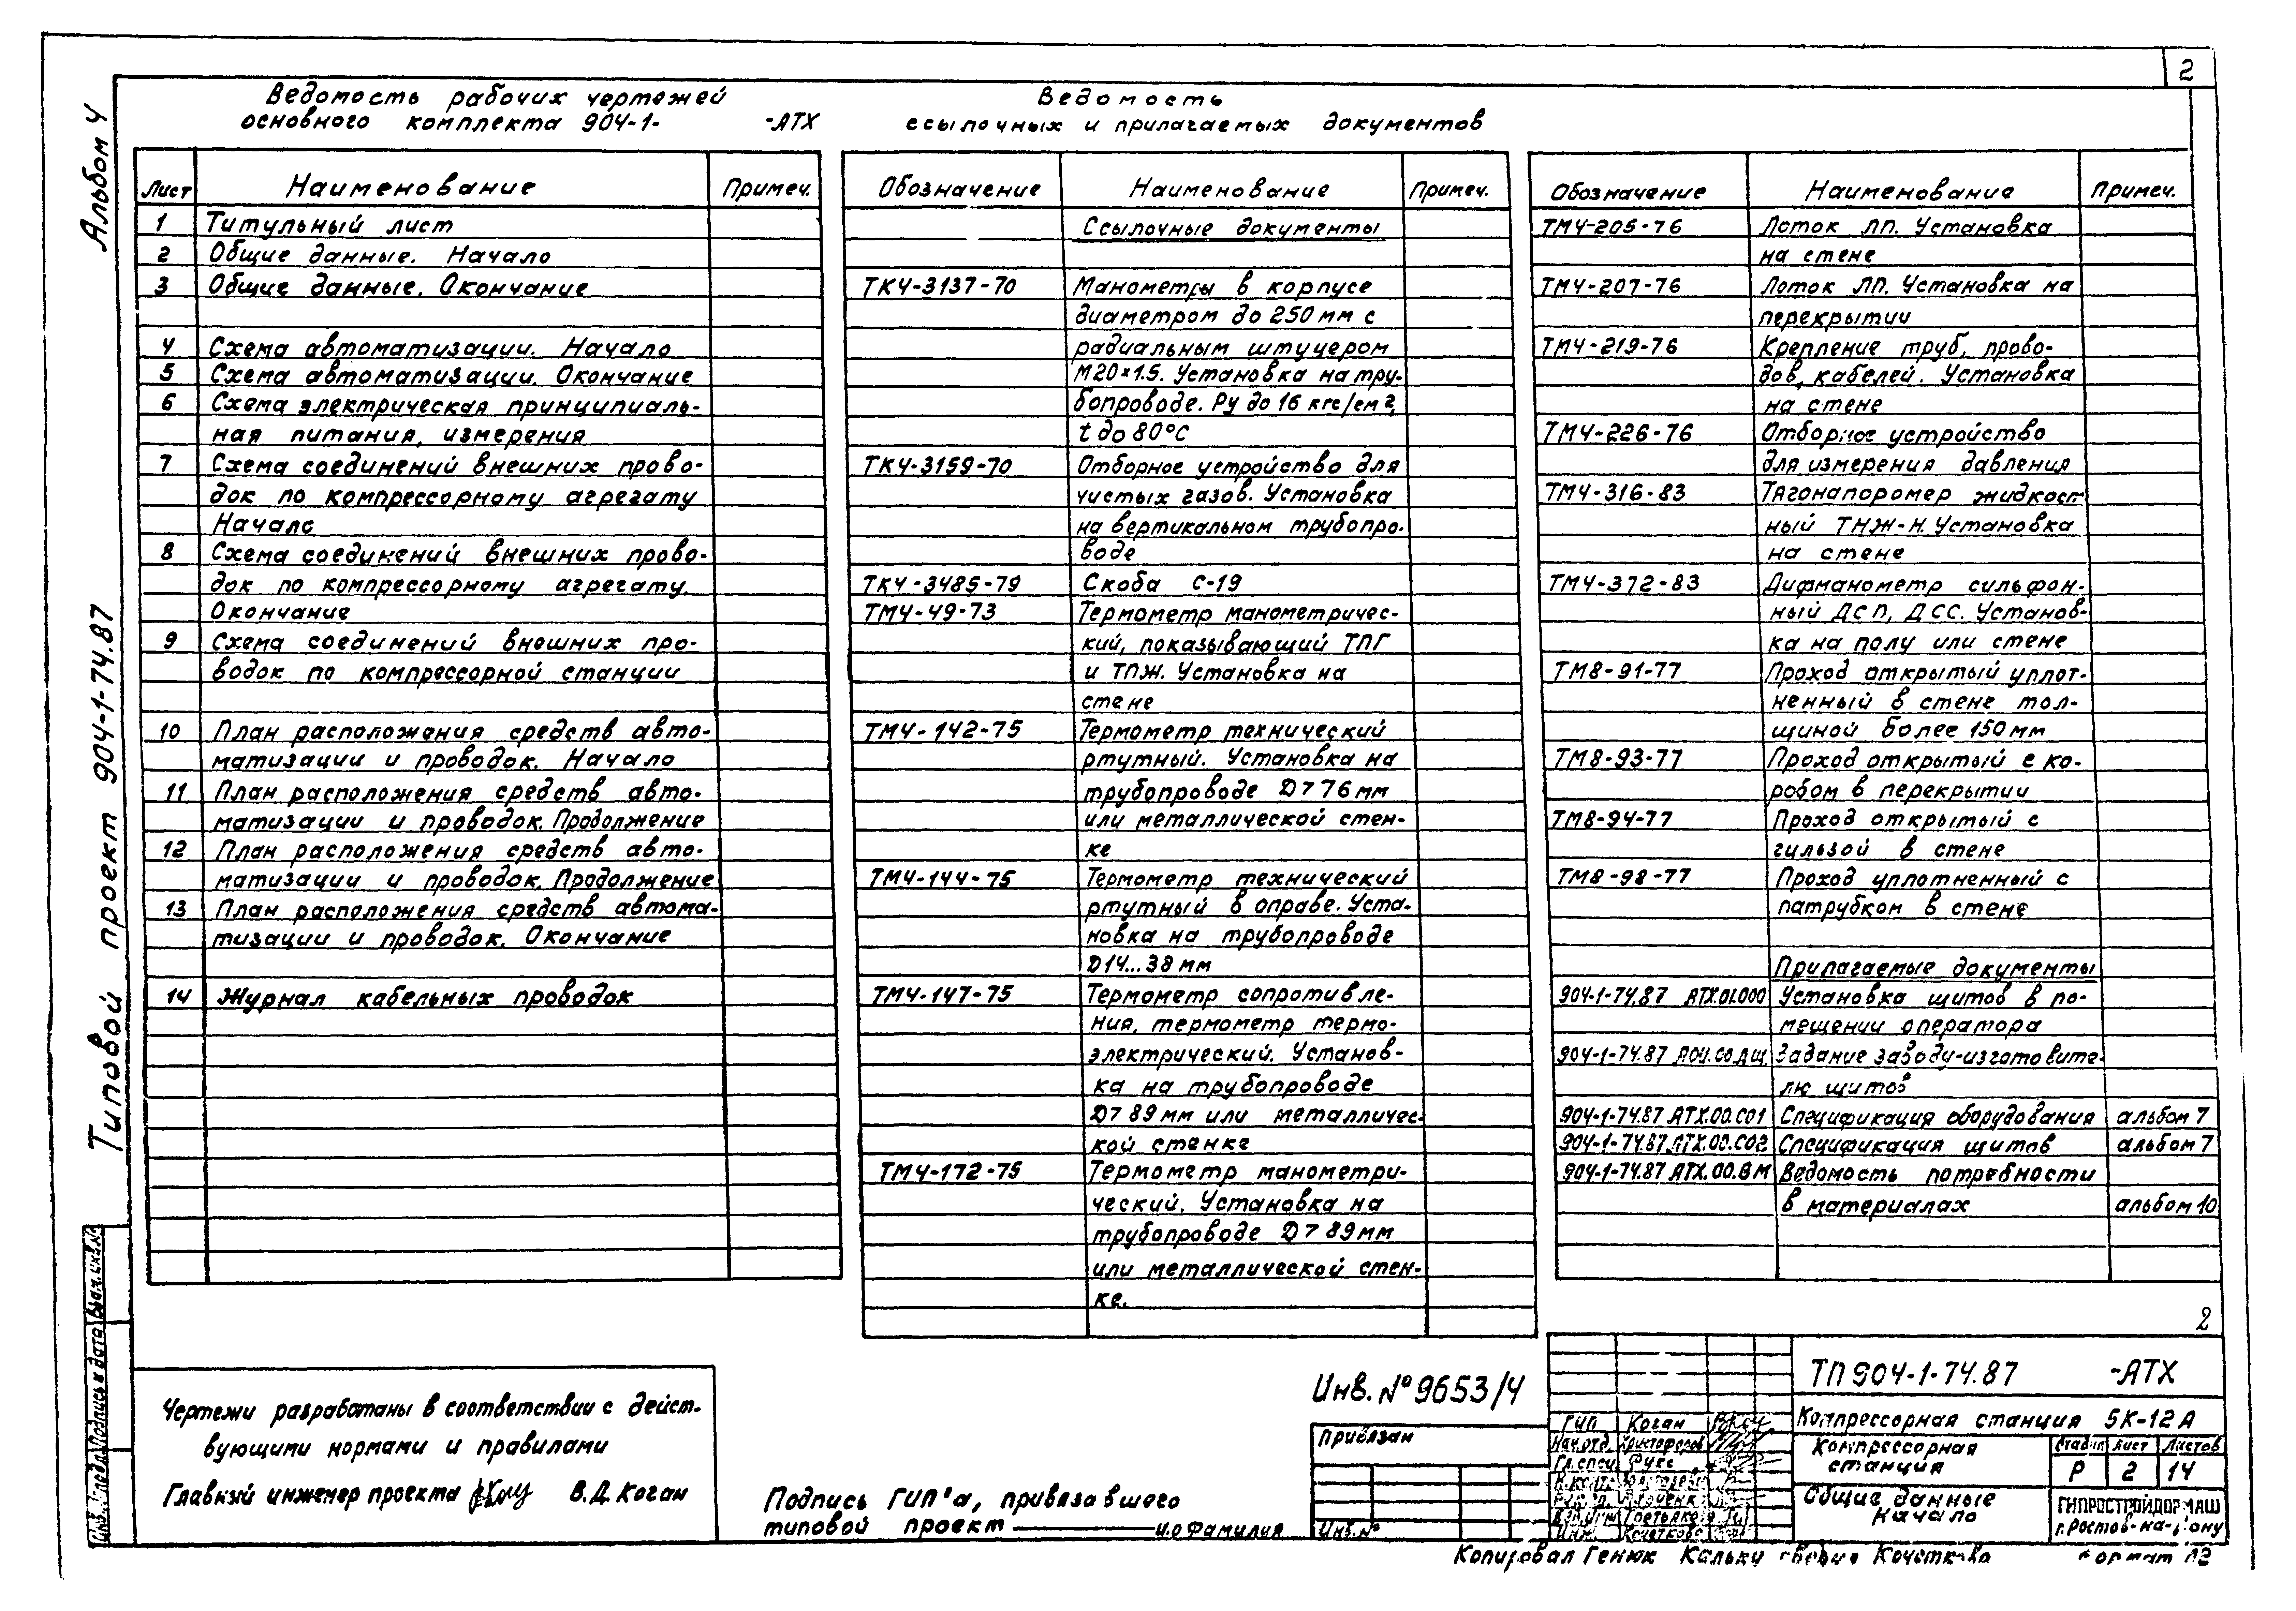 2
Альбом 4
Типовой проект 904-1-74.87
Ведомость рабочих чертежей
основного комплекта 904-1- -АТХ
Лист Наименование Примеч.
1 Титульный лист
2 Общие данные. Начало
3 Общие данные. Окончание
4 Схема автоматизации. Начало
5 Схема автоматизации. Окончание
6 Схема электрическая принципиаль-
ная питания, измерения
7 Схема соединений внешних прово-
док по компрессорному агрегату
Начало
8 Схема соединений внешних прово-
док по компрессорному агрегату.
Окончание
9 Схема соединений внешних про-
водок по компрессорной станции
10 План расположения средств авто-
матизации и проводок. Начало
11 План расположения средств авто-
матизации и проводок. Продолжение
12 План расположения средств авто-
матизации и проводок. Продолжение
13 План расположения средств автома-
тизации и проводок. Окончание
14 Журнал кабельных проводок
Ведомость
ссылочных и прилагаемых документов
Обозначение Наименование Примеч.
Ссылочные документы
ТК4-3137-70 Манометры в корпусе
диаметром до 250 мм с
радиальным штуцером
М20×1.5. Установка на тру-
бопроводе. Ру до 16 кгс/см2,
t до 80°С
ТК4-3159-70 Отборное устройство для
чистых газов. Установка
на вертикальном трубопро-
воде
ТК4-3485-79 Скоба С-19
ТМ4-49-73 Термометр манометричес-
кий, показывающий ТПГ
и ТПЖ. Установка на
стене
ТМ4-142-75 Термометр технический
ртутный. Установка на
трубопроводе D>76мм
или металлической стен-
ке
ТМ4-144-75 Термометр технический
ртутный в оправе. Уста-
новка на трубопроводе
D14...38 мм
ТМ4-147-75 Термометр сопротивле-
ния, термометр термо-
электрический. Установ-
ка на трубопроводе
D>89мм или металличес-
кой стенке
ТМ4-172-75 Термометр манометри-
ческий. Установка на
трубопроводе D>89мм
или металлической стен-
ке.
Обозначение Наименование Примеч.
ТМ4-205-76 Лоток ЛП. Установка
на стене
ТМ4-207-76 Лоток ЛП. Установка на
перекрытии
ТМ4-219-76 Крепление труб, прово-
дов, кабелей. Установка
на стене
ТМ4-226-76 Отборное устройство
для измерения давления
ТМ4-316-83 Тягонапоромер жидкост
ный ТНЖ-Н. Установка
на стене
ТМ4-372-83 Дифманометр сильфон-
ный ДСП, ДСС. Установ-
ка на полу или стене
ТМ8-91-77 Проход открытый уплот-
ненный в стене тол-
щиной более 150мм
ТМ8-93-77 Проход открытый с ко-
робом в перекрытии
ТМ8-94-77 Проход открытый с
гильзой в стене
ТМ8-98-77 Проход уплотненный с
патрубком в стене
Прилагаемые документы
904-1-74.87 АТХ.01.000 Установка щитов в по-
мещении оператора
904-1-74.87 Задание заводу-изготовите-
лю щитов
904-1-74.87 АТХ.00.С01 Спецификация оборудования альбом 7
904-1-74.87 АТХ.00.С02 Спецификация щитов альбом 7
904-1-74.87 АТХ.00.ВМ Ведомость потребности
в материалах альбом 10
2
Чертежи разработаны в соответствии с дейст-
вующими нормами и правилами
Главный инженер проекта В.Д. Коган
Подпись ГИП'а, привязавшего
типовой проект и.о Фамилия
Инв. № 9653/4
Привязан
Инв. №
ГИП Коган
Нач.отд. Христофоров
Гл.спец. Фукс
ТП 904-1-74.87 -АТХ
Компрессорная станция 5К-12А
Компрессорная
станция
Стадия Лист Листов
Р 2 14
Общие данные
Начало
ГИПРОСТРОЙДОРМАШ
г.Ростов-на-Дону
Инв. № подл. Подпись и дата Взам. инв. №
Копировал Генюк Кальку сверил Кочеткова Формат А2